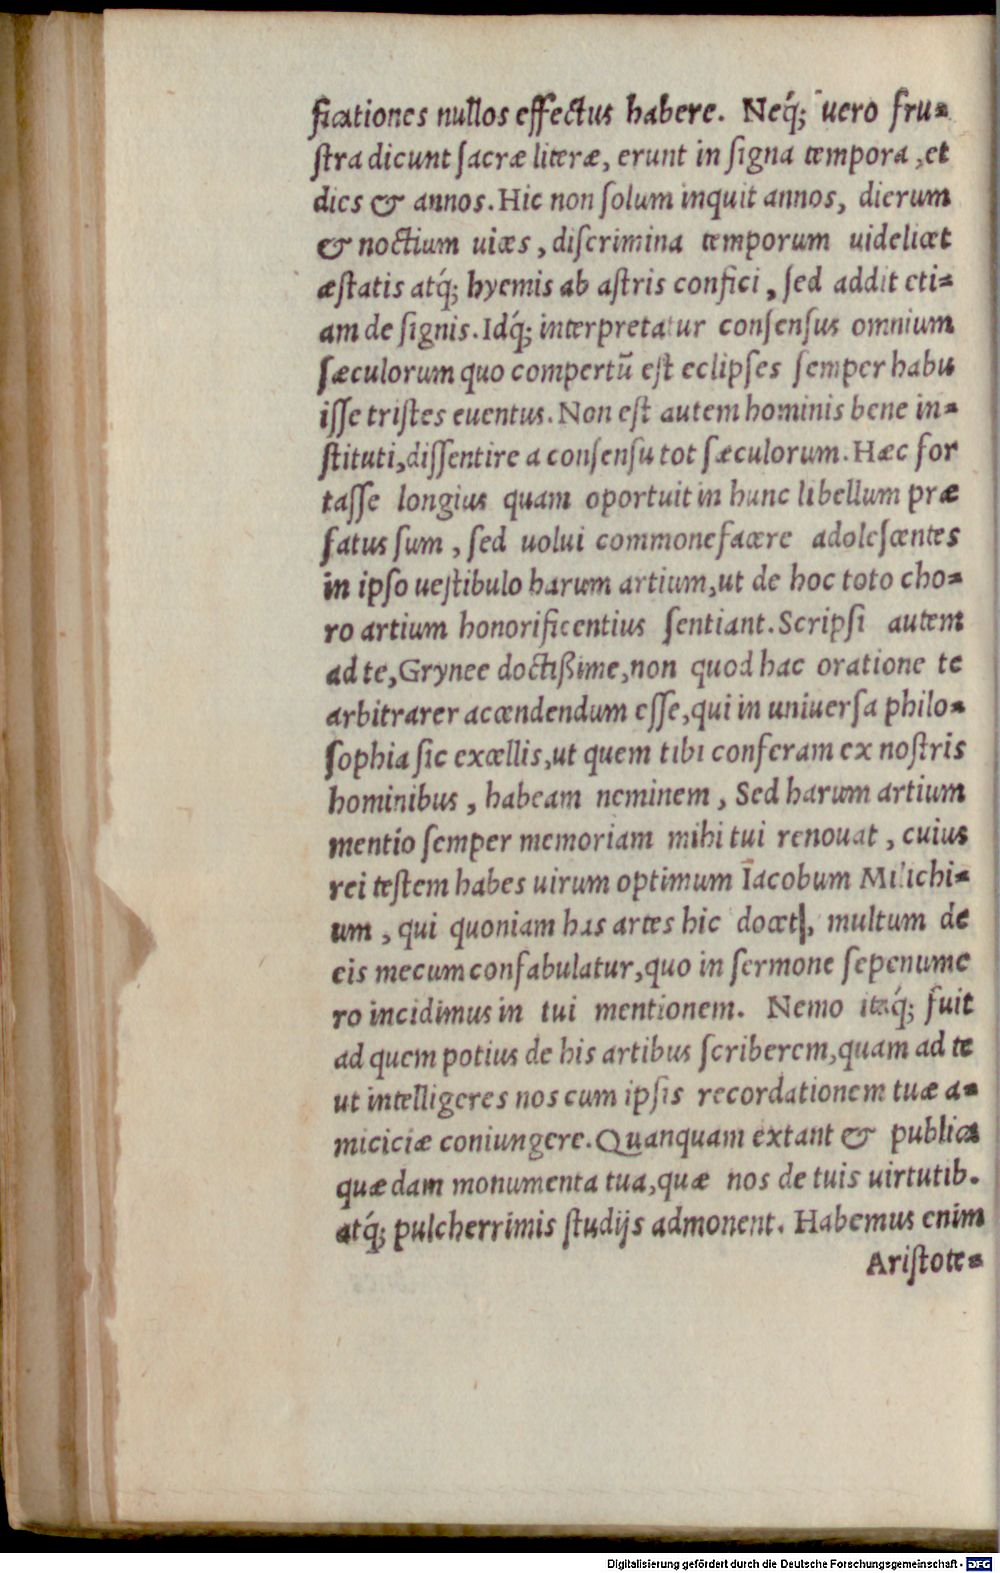 ficationes nullos effectus habere. Neq́; uero fru=
ſtra dicunt ſacræ literæ, erunt in ſigna tempora ,et
dies & annos. Hic non ſolum inquit annos, dierum
& noctium uices , diſcrimina temporum uidelicet
æſtatis atq́; hyemis ab aſtris confici , ſed addit eti=
am de ſignis. Idq́; interpretatur conſenſus omnium
ſæculorum quo compertũ eſt eclipſes ſemper habu
iſſe triſtes euentus. Non eſt autem hominis bene in=
ſtituti,diſſentire a conſenſu tot ſæculorum. Hæc for
taſſe longius quam oportuit in hunc libellum præ
fatus ſum , ſed uolui commonefacere adoleſcentes
in ipſo ueſtibulo harum artium,ut de hoc toto cho=
ro artium honorificentius ſentiant. Scripſi autem
ad te,Grynee doctißime,non quod hac oratione te
arbitrarer accendendum eſſe,qui in uniuerſa philo=
ſophia ſic excellis,ut quem tibi conferam ex noſtris
hominibus , habeam neminem , Sed harum artium
mentio ſemper memoriam mihi tui renouat , cuius
rei teſtem habes uirum optimum Iacobum Milichi=
um , qui quoniam has artes hic docet, multum de
eis mecum confabulatur,quo in ſermone ſepenume
ro incidimus in tui mentionem. Nemo itaq́; fuit
ad quem potius de his artibus ſcriberem,quam ad te
ut intelligeres nos cum ipſis recordationem tuæ a=
miciciæ coniungere. Quanquam extant & publica
quædam monumenta tua,quæ nos de tuis uirtutib.
atq́; pulcherrimis ſtudijs admonent. Habemus enim
Ariſtote=
Digitalisierung gefördert durch die Deutsche Forschungsgemeinschaft - DFG